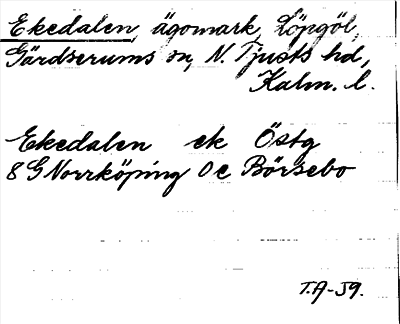 Ekedalen, ägomark, Löpgöl,
Gärdserums sn, N. Tjusts hd,
Kalm. l.
Ekedalen ek Östg
8G Norrköping 0c Börsebo
T.A-59.